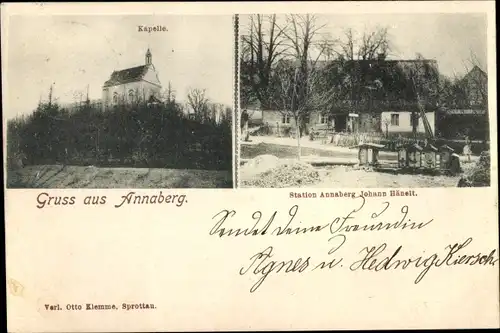 Kapelle.
Station Annaberg Johann Hänelt.
Gruss aus Annaberg.
Sendet deine Freundin
Agnes u. Hedwig Kiersch
Verl. Otto Klemme, Sprottau.